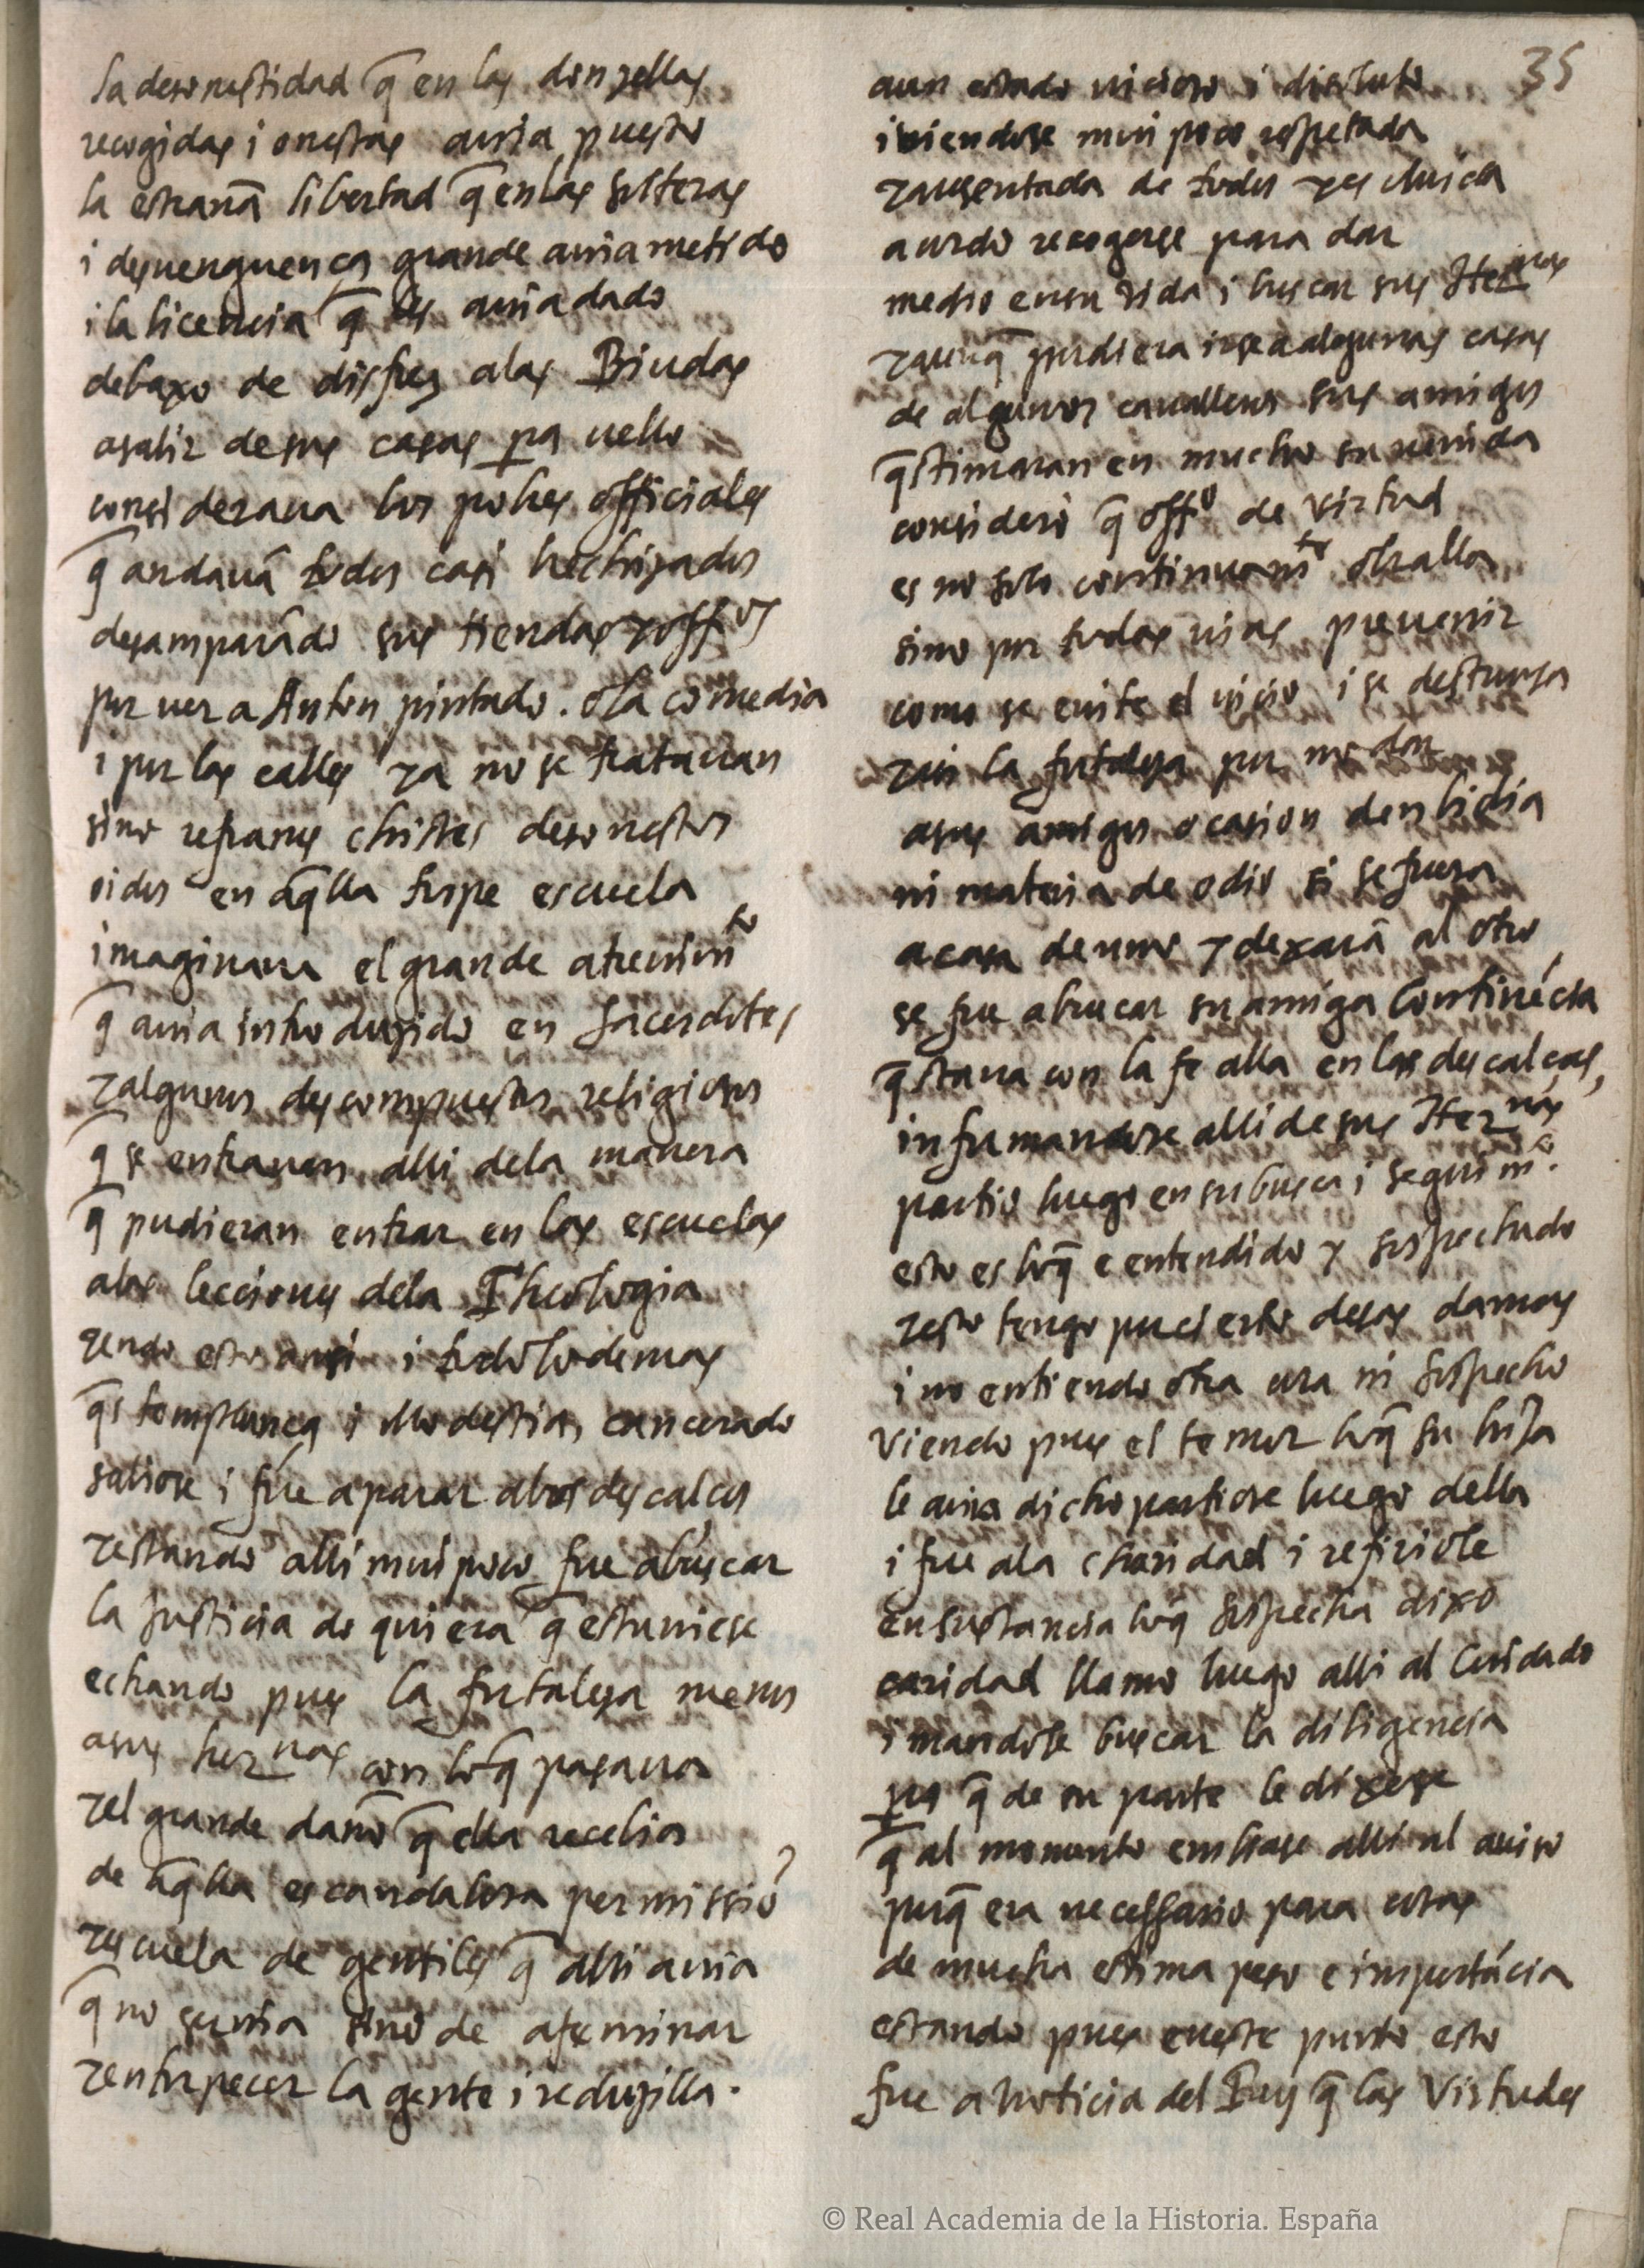 la desonestidad q̄ en las donzellas
recogidas i onestas auia puesto
la estranā libertad q̄ en las solteras
i desuerguença grande auia metido
i la licencia q̄ les auia dado
debaxo de disfraz a las Biudas
a salir de sus casas pa uello
consideraua los pobres officiales
q̄ andauā todos casi hechizados
desamparādo sus tiendas y offos
por uer a Anton pintado. o la comedia
i por las calles ya no se tratauan
sino refranes chistes desonestos
oidos en aq̄lla torpe escuela
imaginaua el grande atreuimto
q̄ auia introduzido en sacerdotes
y algunos descompuestos religiosos
q̄ se entrauan alli dela manera
q̄ pudieran entrar en las escuelas
alas lecciones dela Theologia
yendo esto ansi i todo lo demas
q̄s templança i Modestia, cancerado
saliose i fue a parar a los descalços
y estando alli mui poco fue a buscar
la Justicia do quiera q̄ estuuiese
echando pues la fortaleza menos
a sus hernas con lo q̄ pasaua
y el grande daño q̄ ella recebia
de aq̄lla escandalosa permissiō
y escuela de gentiles q̄ alli auia
q̄ no seruia sino de afeminar
y entorpecer la gente i reduzilla.
35
a un estado uicioso i disoluto
i uiendose mui poco respetada
y ausentada de todos y escluida
acordo recogerse para dar
medio en su vida i buscar sus Hernas
y aunq̄ pudiera irse a algunas casas
de algunos caualleros sus amigos
q̄stimaran en mucho su uenida
consideró q̄ offo de virtud
es no solo continuamte obralla
sino por todas uias preuenir
como se euite el uicio i se destruya
y asi la fortaleza por no dar
a sus amigos ocasion denbidia
ni materia de odio si se fuera
a casa de uno y dexarā al otro
se fue a buscar su amiga Continēcia
q̄staua con la fe alla en las descalças,
informandose alli de sus Hernas
partio luego en su busca i seguimo.
esto es lo q̄ e entendido y sospechado
y esto tengo por cierto desas damas
i no entiendo otra cosa ni sospecho
Viendo pues el temor lo q̄ su hija
le auia dicho partiose luego della
i fue ala charidad i refiriole
en sustancia lo q̄ sospecha dixo
caridad llamo luego alli al Cuidado
i mandole buscar la diligencia
pa q̄ de su parte le dixese
q̄ al momento enbiase alli al auiso
porq̄ era necessario para cosas
de mucha estima peso e importācia
estando pues eneste punto esto
fue a noticia del Rey q̄ las Virtudes
© Real Academia de la Historia. España